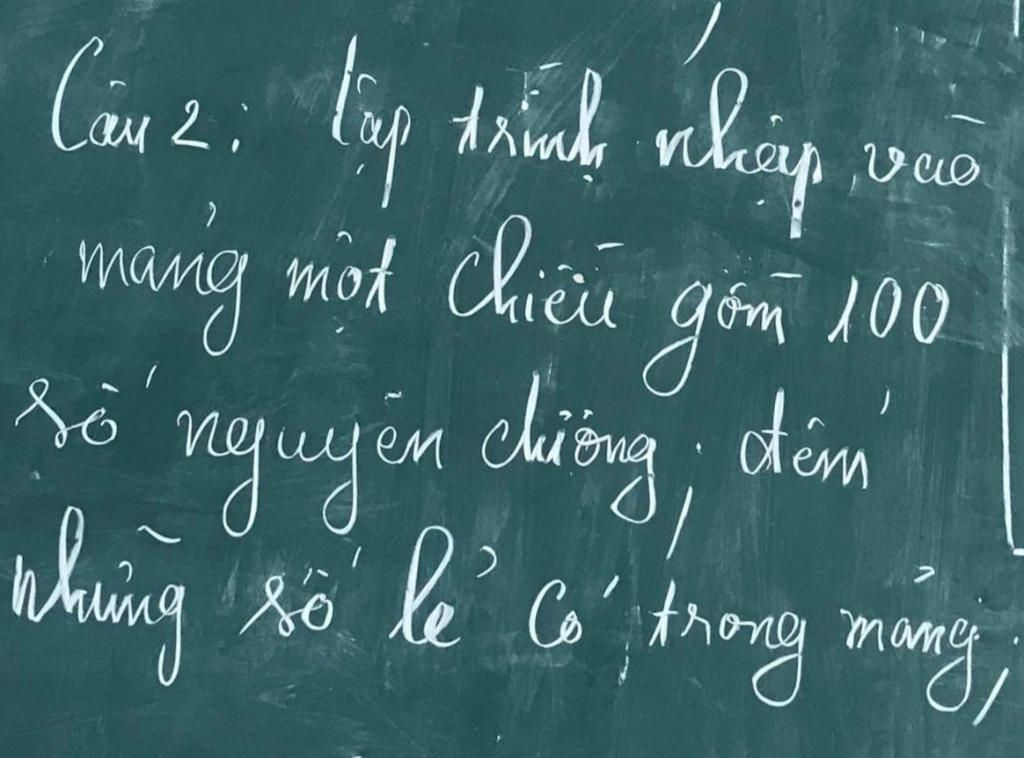 Câu 2: Lập trình nhập vào
mảng một chiều gồm 100
số nguyên dương; đếm
những số lẻ có trong mảng;